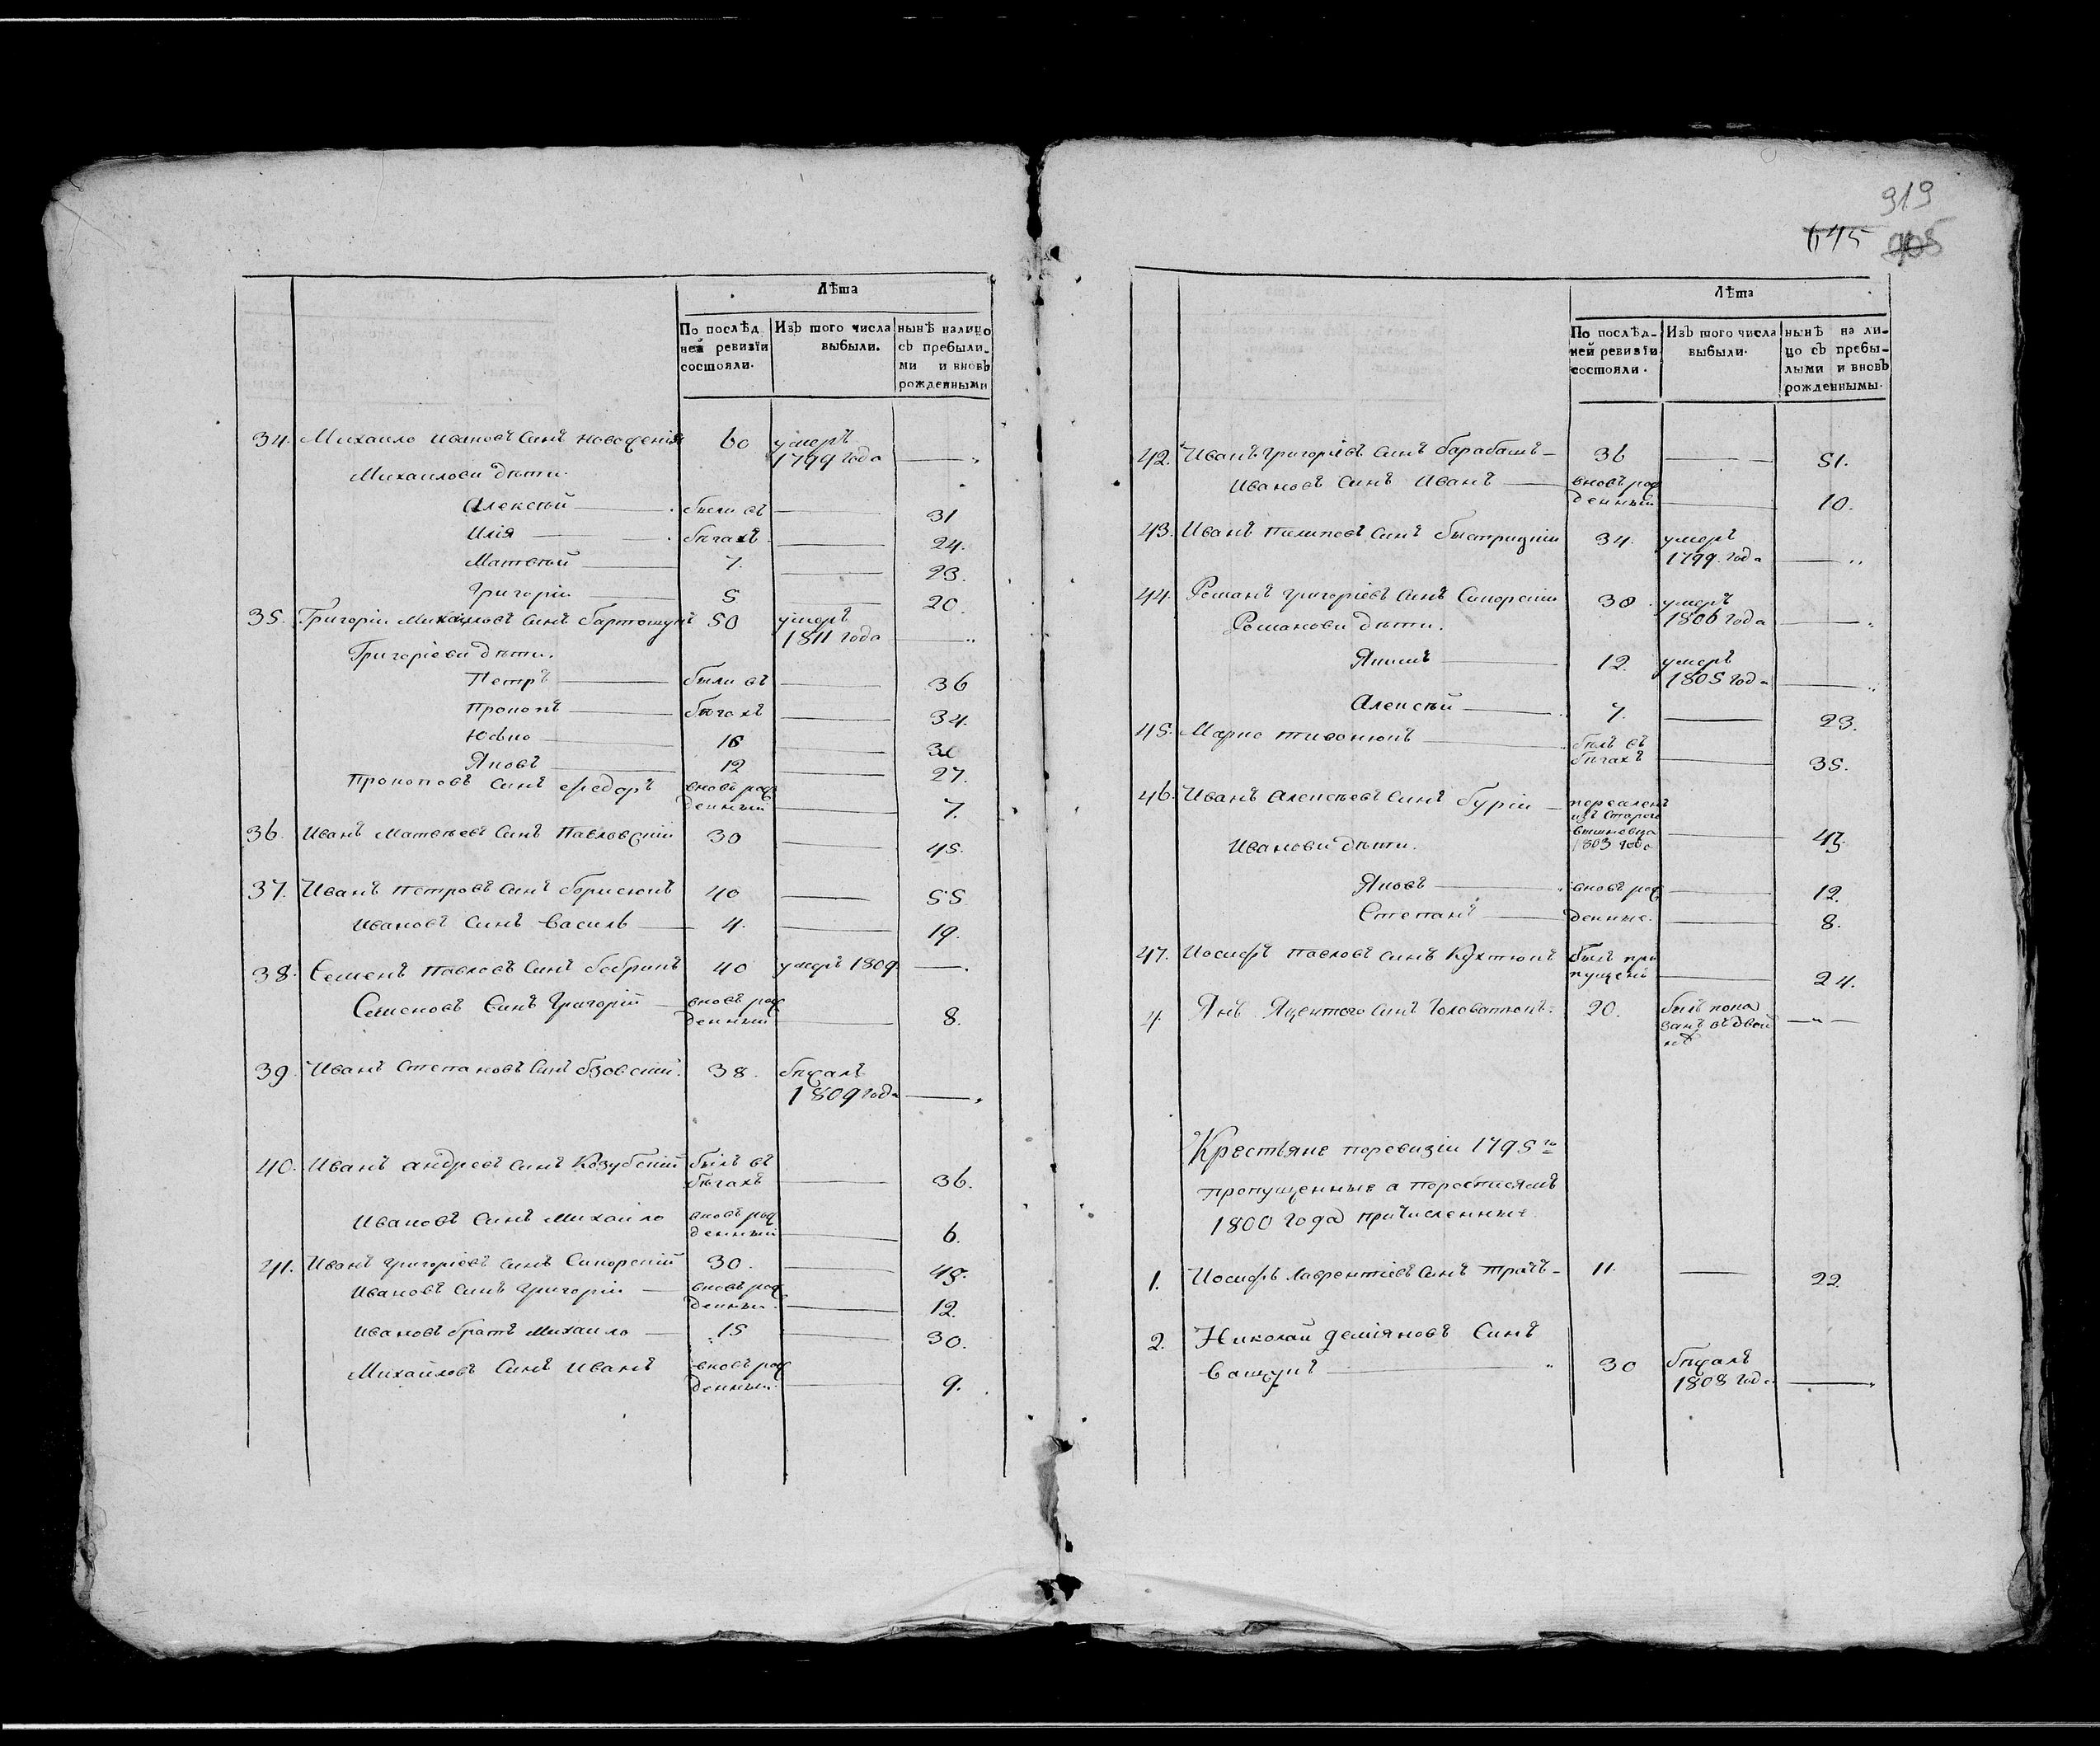 Лѣта
По послѣд
ней ревизїи
состояли.
Изъ того числа
выбыли.
нынѣ налицо
съ пребыли-
ми и вновь
рожденными
34. Михаило Ивановъ Синъ 60 умеръ
1799 года
Михаилови дѣти.
Алексѣй были въ 31
Илія бѣгахъ 24.
Матвѣй 7. 23.
Григорій 5 20.
35. Григорій Михайловъ Синъ 50 умеръ
1811 года
Григоріеви дѣти.
Петръ были въ 36
Прокопъ бѣгахъ 34.
Юсько 16
Яковъ 12 27.
Прокоповъ Синъ Федоръ вновь рож
денный 7.
36. Иванъ Матвѣевъ Синъ Павловскій 30 45.
37. Иванъ Петровъ Синъ Борисюкъ 40 55
Ивановъ Синъ Василь 4. 19.
38. Семенъ Павловъ Синъ Бобрикъ 40 умеръ 1809
Семеновъ Синъ Григорій вновь рож
денный 8.
39. Иванъ Степановъ Синъ 38. бѣжалъ
1809 года
40. Иванъ Андреевъ Синъ Козубскій былъ въ
бѣгахъ 36.
Ивановъ Синъ Михайло вновь рож
денный 6.
41. Иванъ Григоріевъ Синъ Сикорскій 30. 45.
Ивановъ Синъ Григорій вновь рож
денный. 12.
Ивановъ братъ Михайло 15 30.
Михайловъ Синъ Иванъ вновь рож
денный. 9.
919
645
Лѣта
По послѣд-
ней ревизїи
состояли.
Изъ того числа
выбыли.
нынѣ на ли-
цо съ пребы-
лыми и вновь
рожденнымы.
42. Иванъ Григоріевъ Синъ Барабашъ 36 51.
Ивановъ Синъ Иванъ вновь рож
денный 10.
43. Иванъ Пилиповъ Синъ Быстрицкій 34. умеръ
1799. года
44. Романъ Григоріевъ Синъ Сикорскій 38. умеръ
1806 года
Романови дѣти.
Якимъ 12. умеръ
1805 года
Алексѣй 7. 23.
45. Марко Тивонюкъ былъ въ
бѣгахъ 35.
46. Иванъ Алексѣевъ Синъ Бурій
изъ Стараго
Вишневца
1803 года 43.
Иванови дѣти.
Яковъ вновь рож 12.
Степанъ денные. 8.
47. Иосифъ Павловъ Синъ Кухтюкъ былъ про
пущенъ 24.
4 Янъ Яцентого Синъ Головатюкъ 20. былъ пока
занъ въ двой
нѣ
Крестьяне поревизіи 1795го
пропущенные а поросписямъ
1800 года причисленные
1. Иосифъ Лаврентіевъ Синъ Трачъ 11. 22.
2. Николай Деміяновъ Синъ
Ващукъ 30 бѣжалъ
1808 года